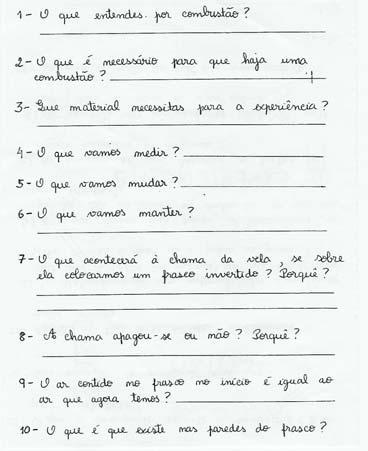 1 - O que entendes por combustão?
2 - O que é necessário para que haja uma
combustão?
3 - Que material necessitas para a experiência?
4 - O que vamos medir?
5 - O que vamos mudar?
6 - O que vamos manter?
7 - O que acontecerá à chama da vela, se sobre
ela colocarmos um frasco invertido? Porquê?
8 - A chama apagou-se ou não? Porquê?
9 - O ar contido no frasco no início é igual ao
ar que agora temos?
10 - O que é que existe nas paredes do frasco?